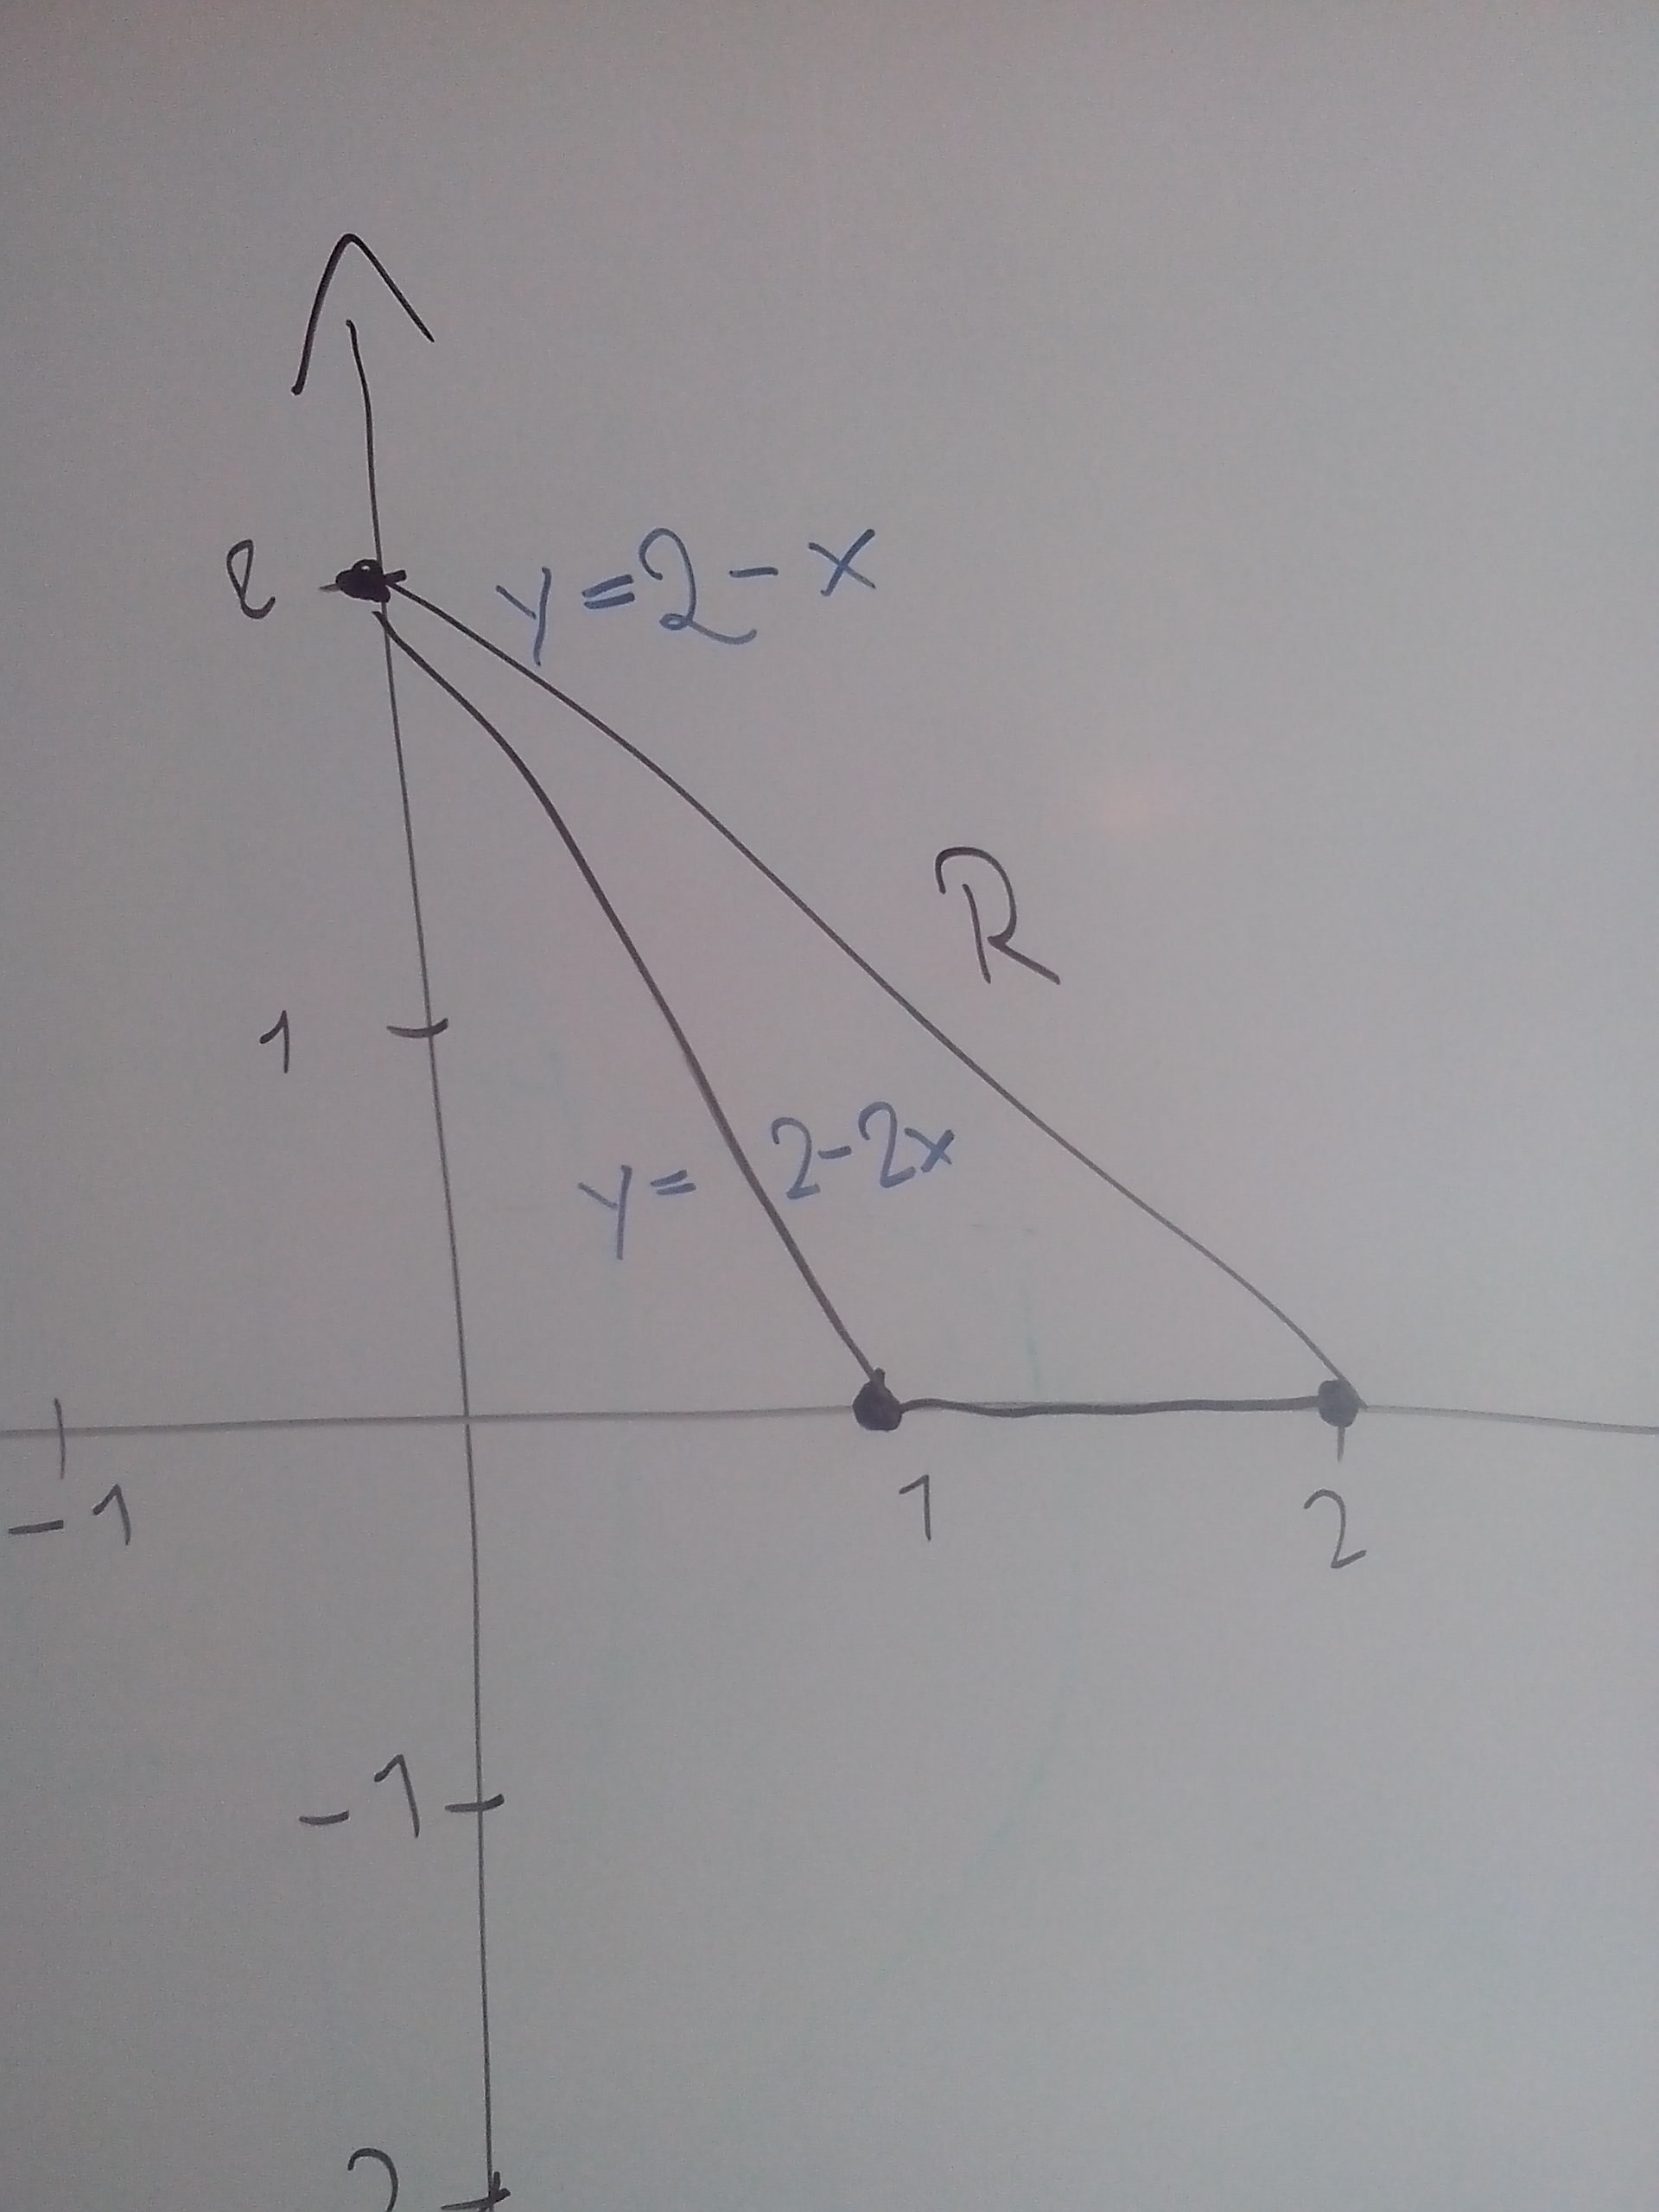 2
y = 2 - x
R
1
y = 2-2x
-1
1
2
-1
2